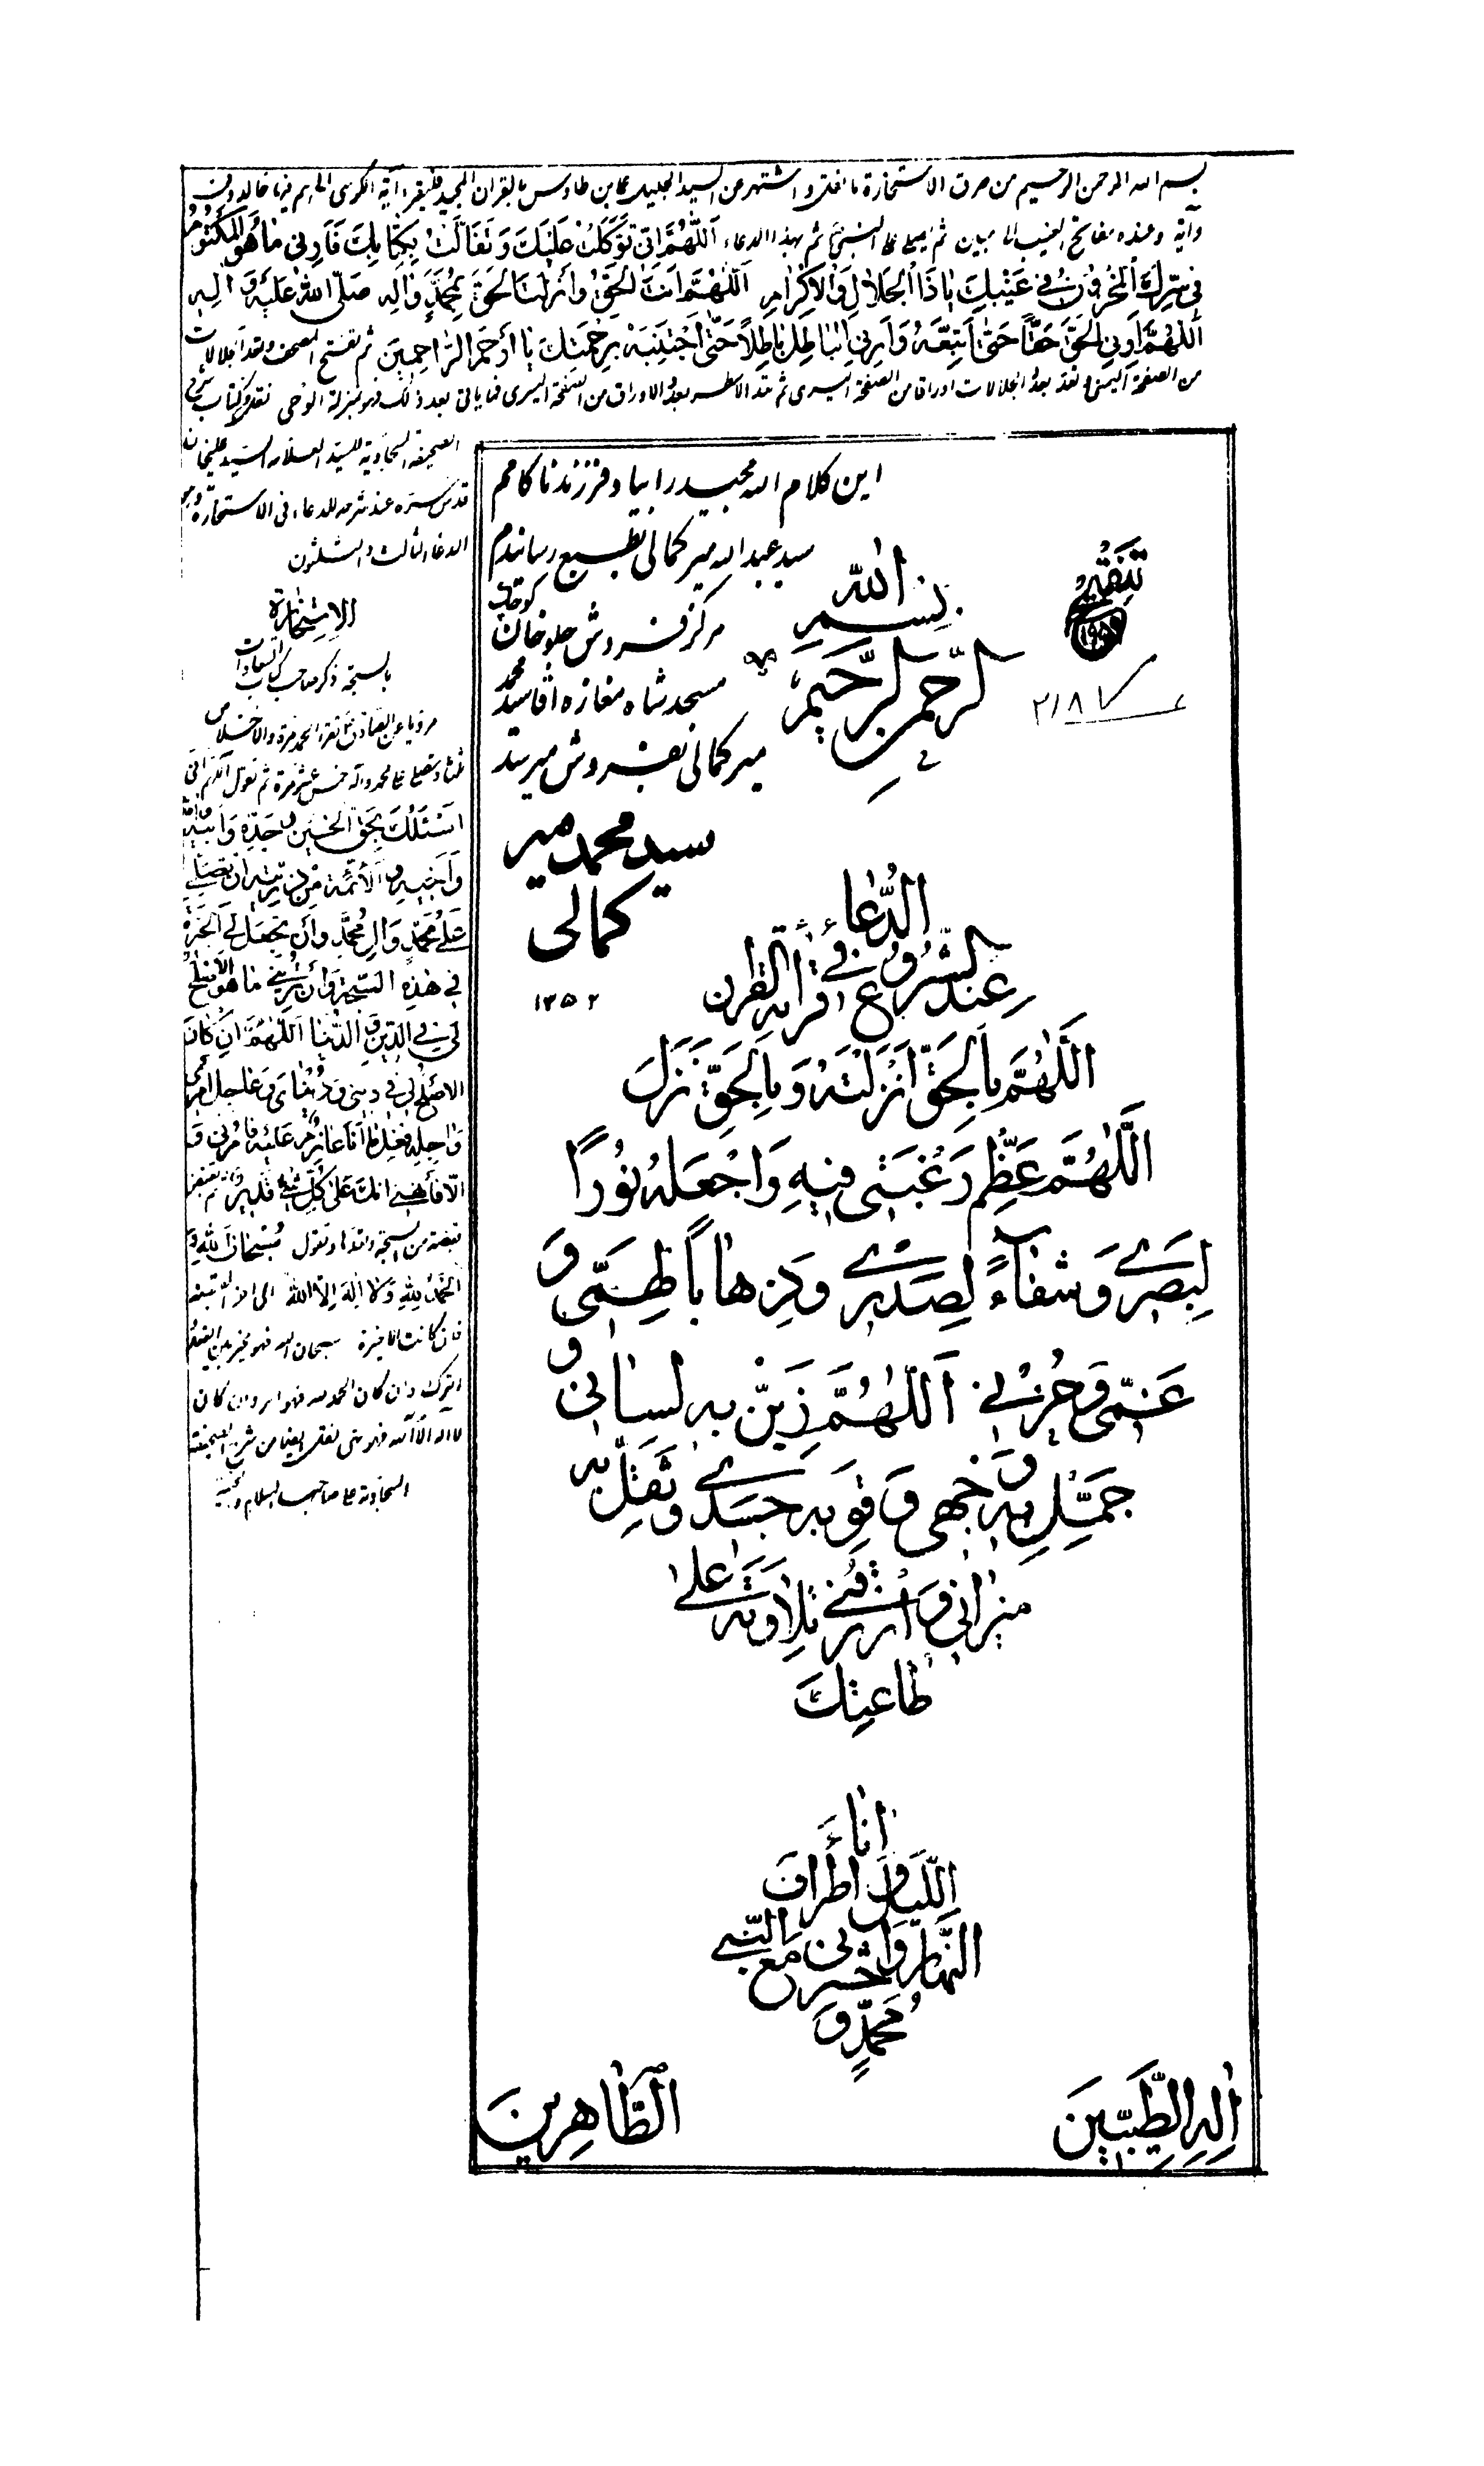 بسم الله الرحمن الرحيم من طرق الاستخارة ما اشتهر من السيد الجليل على ابن طاوس بالقران المجيد فليقرء آية الكرسى الى هم فيها خالدون
وآية وعنده مفاتح الغيب الى مبين ثم يصلى على النبى ثم بهذا الدعاء اَللّهُمَّ اِنّى تَوَكَّلْتُ عَلَيْكَ وَتَفَأَّلْتُ بِكِتابِكَ فَاَرِنى ما هُوَ الْمَكْتُومُ
فى سِرِّكَ الْمَخْزُونُ فى غَيْبِكَ يا ذَا الْجَلالِ وَالْاِكْرامِ اَللّهُمَّ اَنْتَ الْحَقُّ وَاَنْزَلْتَ الْحَقَّ بِمُحَمَّدٍ وَآلِهِ صَلَّى اللهُ عَلَيْهِ وَآلِهِ
اَللّهُمَّ اَرِنِى الْحَقَّ حَقّاً حَتّى اَتَّبِعَهُ وَاَرِنِى الْباطِلَ باطِلاً حَتّى اَجْتَنِبَهُ بِرَحْمَتِكَ يا اَرْحَمَ الرّاحِمينَ ثم تفتتح المصحف وتعد الجلالات
من الصفحة اليمنى وتعد بعدد الجلالات اوراقا من الصفحة اليسرى ثم تعد الاسطر بعدد الاوراق من الصفحة اليسرى فما ياتى بعد ذلك فهو بمنزلة الوحى
الصحيفة السجادية للسيد العلامه السيد عليخان
قدس سره عند شرحه للدعاء فى الاستخارة وهو
الدعاء الثالث والثلثون
الاِسْتِخارَة
بالسبحة ذكر صاحب كتاب السعادات
مرويا عن الصادق تقرء الحمد مرة والاخلاص
ثلثا وتصلى على محمد وآله خمس عشر مرة ثم تقول اللهم انى
اَسْئَلُكَ بِحَقِّ الْحُسَيْنِ وَجَدِّهِ وَاَبيهِ وَاُمِّهِ
وَاَخيهِ وَالْاَئِمَّةِ مِنْ ذُرِّيَّتِهِ اَنْ تُصَلِّىَ
عَلى مُحَمَّدٍ وَآلِ مُحَمَّدٍ وَاَنْ تَجْعَلَ لِىَ الْخِيَرَةَ
فى هذِهِ السُّبْحَةِ وَاَنْ تُرِيَنى ما هُوَ الْاَصْلَحُ
لى فِى الدّينِ وَالدُّنْيا اَللّهُمَّ اِنْ كانَ
الْاَصْلَحُ لى فى دينى وَدُنْياىَ وَعاجِلِ اَمْرى
وَآجِلِهِ فِعْلَ ما اَنَا عازِمٌ عَلَيْهِ فَأْمُرْنى وَ
اِلّا فَانْهَنى اِنَّكَ عَلى كُلِّ شَىْءٍ قَديرٌ ثم تقبض
قبضة من السبحة وتعدها وتقول سُبْحانَ اللهِ وَ
الْحَمْدُ لِلّهِ وَلا اِلهَ اِلَّا اللهُ الى اخر القبضة
فان كانت الاخيرة سبحان الله فهو مخير بين الفعل
والترك وان كان الحمد لله فهو امر وان كان
لا اله الا الله فهو نهى نقل ايضا من شرح الصحيفة
السجادية على صاحبها السلام والتحية
اين كلام الله مجيد را بياد فرزند ناكامم
سيد عبدالله مير كمالى بطبع رسانيدم
مركز فروش جلوخان كوچك
مسجد شاه مغازه آقا سيد محمد
مير كمالى بفروش ميرسد
سيد محمد مير
كمالى
١٣٥٢
تنقيح
٢١٨٧
بِسْمِ اللهِ
الرَّحْمنِ الرَّحيمِ
الدُّعاءُ
عِنْدَ الشُّرُوعِ فى قَرائَةِ الْقُرآن
اَللّهُمَّ بِالْحَقِّ اَنْزَلْتَهُ وَبِالْحَقِّ نَزَلَ
اَللّهُمَّ عَظِّمْ رَغْبَتى فيهِ وَاجْعَلْهُ نُوراً
لِبَصَرى وَشِفاءً لِصَدْرى وَذِهاباً لِهَمّى وَ
غَمّى وَحُزْنى اَللّهُمَّ زَيِّنْ بِهِ لِسانى وَ
جَمِّلْ بِهِ وَجْهى وَقَوِّ بِهِ جَسَدى وَثَقِّلْ بِهِ
ميزانى وَارْزُقْنى تِلاوَتَهُ عَلى
طاعَتِكَ
اناءَ
اللَّيْلِ وَاَطْرافَ
النَّهارِ وَاحْشُرْنى مَعَ النَّبِىِّ
مُحَمَّدٍ وَ
آلِهِ الطَّيِّبينَ
الطّاهِرينَ